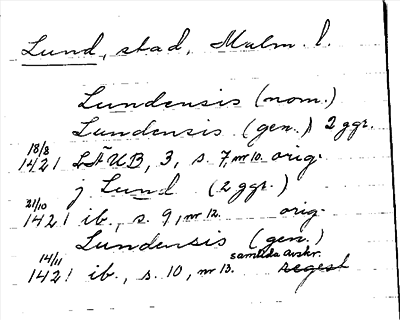 Lund, stad, Malm. l.
Lundensis (nom.)
Lundensis (gen.) 2 ggr.
18/8 1421 LÄUB, 3, s. 7, nr 10. orig.
j Lund (2 ggr.)
21/10 1421 ib., s. 9, nr 12. orig.
Lundensis (gen.)
14/11 1421 ib., s. 10, nr 13. samtida avskr. regest